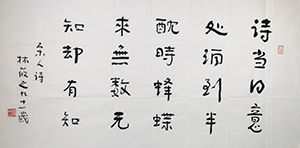 诗当得意
处酒到半
酣時蜂蝶
來無数无
知却有知
宋人诗
林筱之九十一歲